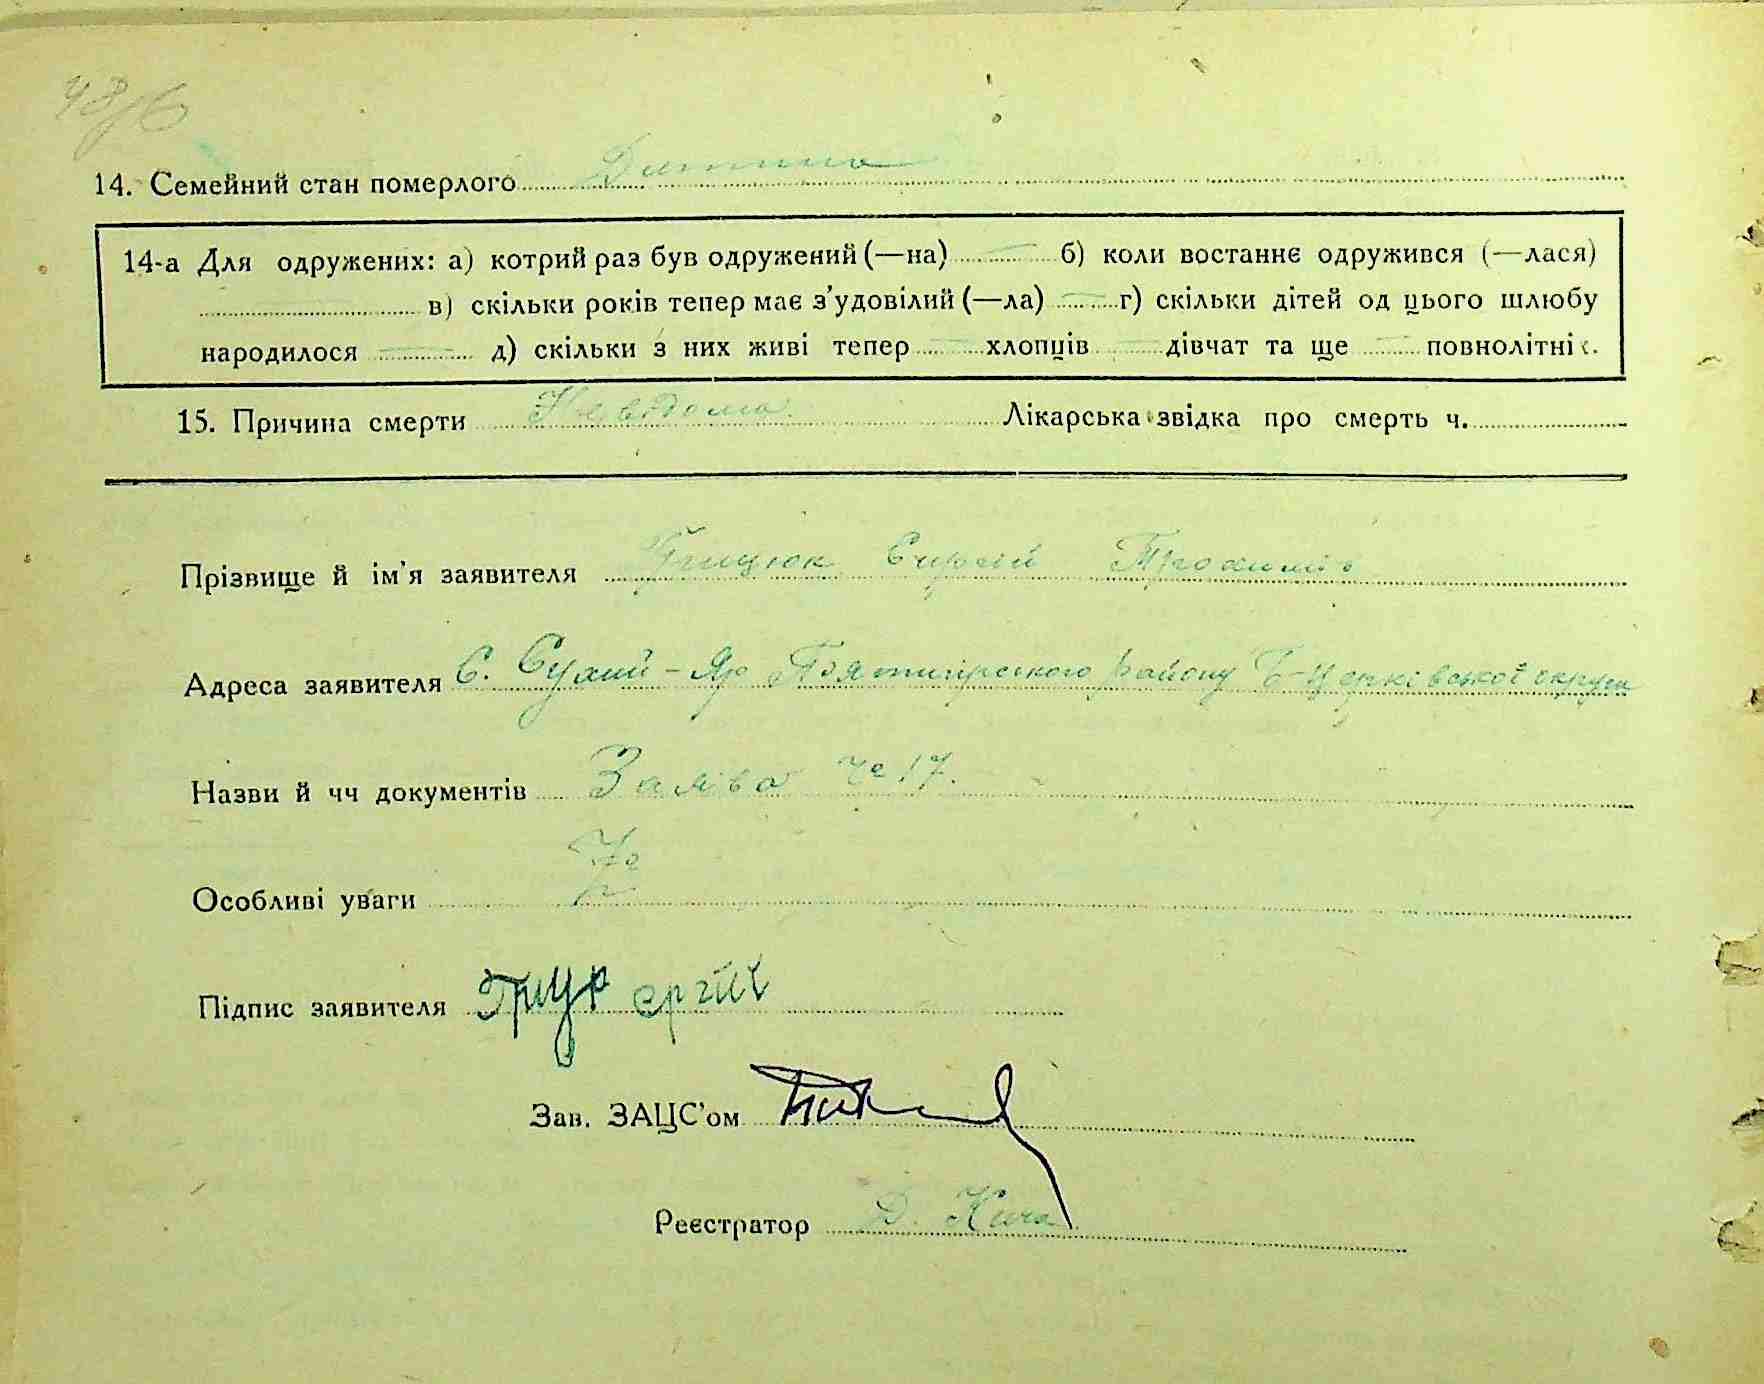 48/6
14. Семейний стан померлого Дитина
14-а Для одружених: а) котрий раз був одружений (—на) — б) коли востаннє одружився (—лася)
в) скільки років тепер має з’удовілий (—ла) — г) скільки дітей од цього шлюбу
народилося — д) скільки з них живі тепер — хлопців — дівчат та ще — повнолітніх.
15. Причина смерти Невідома. Лікарська звідка про смерть ч.
Прізвище й ім’я заявителя Грицюк Сиргій Трохимів
Адреса заявителя С. Сухий-Яр Пятигірського району Б-Церківської округи
Назви й чч документів Заява № 17.
Особливі уваги
Підпис заявителя Грицю ергій
Зав. ЗАЦС’ом
Реєстратор Д. Кича